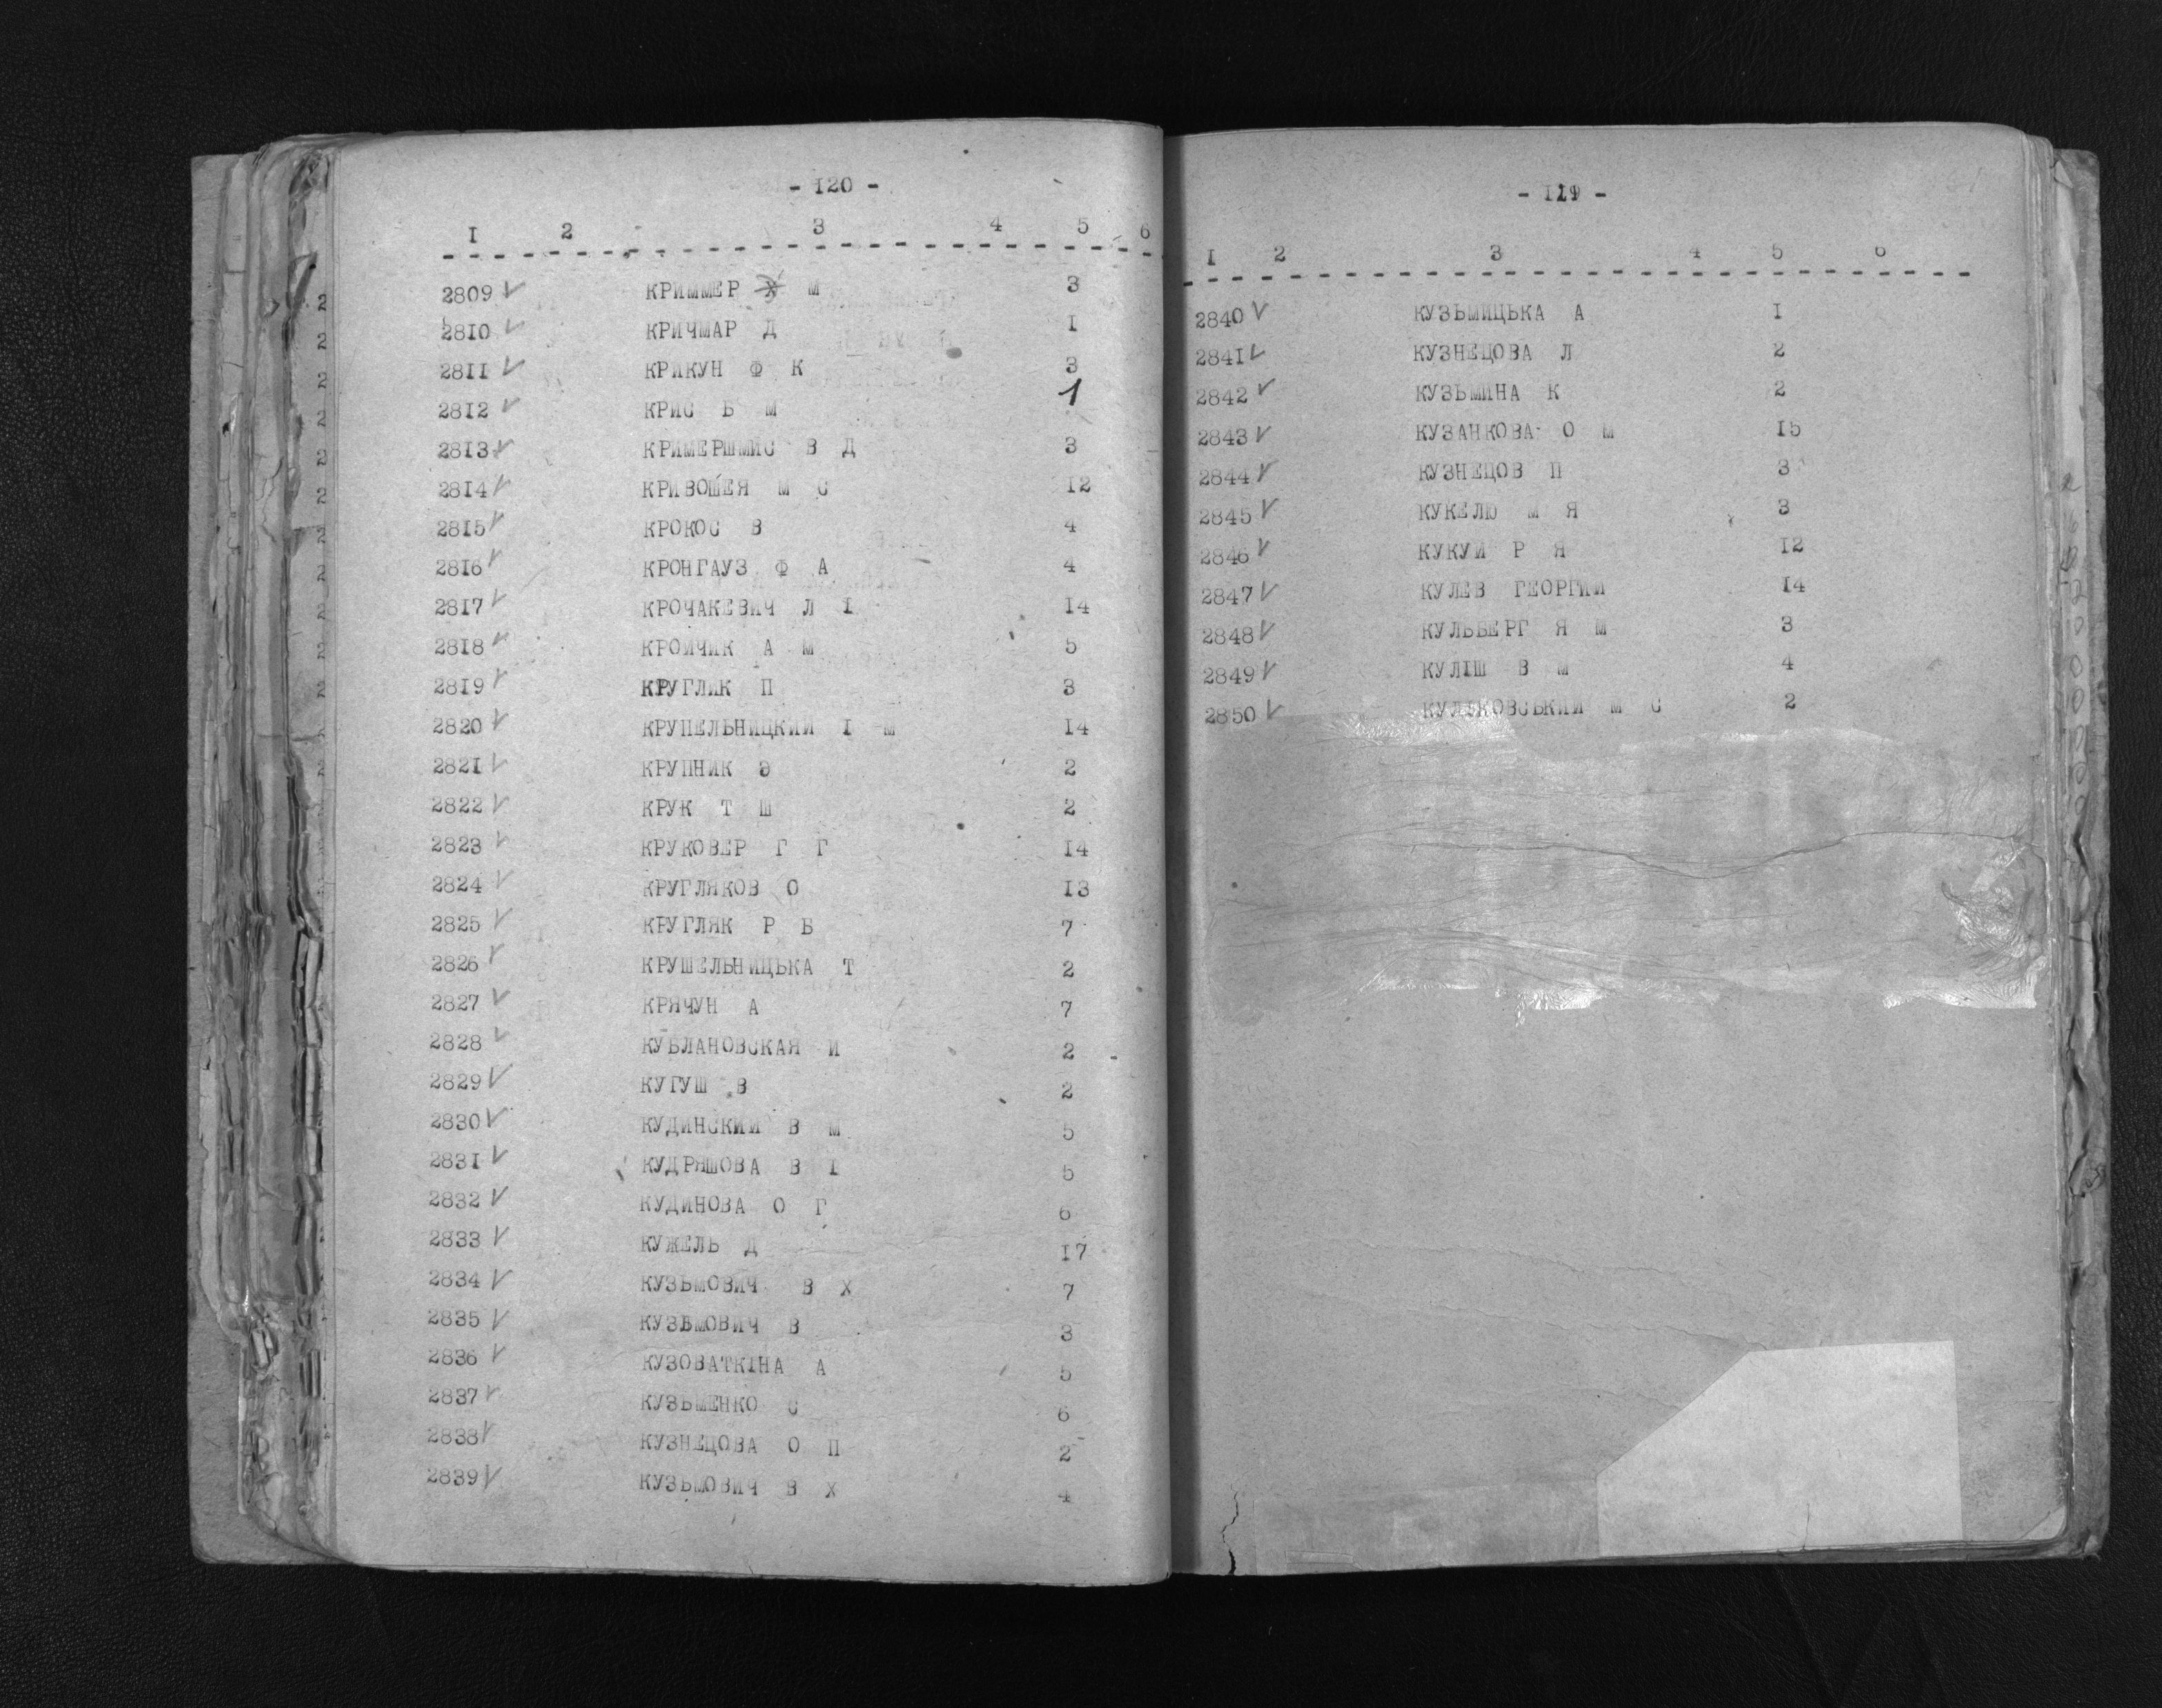 - 120 -
I 2 3 4 5 6
2809 КРИММЕР Х М 3
2810 КРИЧМАР Д I
2811 КРИКУН Ф К 3
2812 КРИС Б М 1
2813 КРИМЕРШМИС В Д 3
2814 КРИВОШЕЯ М С 12
2815 КРОКОС В 4
2816 КРОНГАУЗ Ф А 4
2817 КРОЧАКЕВИЧ Л І 14
2818 КРОИЧИК А М 5
2819 КРУГЛИК П 3
2820 КРУПЕЛЬНИЦКИИ І М 14
2821 КРУПНИК Э 2
2822 КРУК Т Ш 2
2823 КРУКОВЕР Г Г 14
2824 КРУГЛЯКОВ О 13
2825 КРУГЛЯК Р Б 7
2826 КРУШЕЛЬНИЦЬКА Т 2
2827 КРЯЧУН А 7
2828 КУБЛАНОВСКАЯ И 2
2829 КУГУШ В 2
2830 КУДИНСКИИ В М 5
2831 КУДРЯШОВА В І 5
2832 КУДИНОВА О Г 6
2833 КУЖЕЛЬ Д 17
2834 КУЗЬМОВИЧ В Х 7
2835 КУЗЬМОВИЧ В 3
2836 КУЗОВАТКІНА А 5
2837 КУЗЬМЕНКО С 6
2838 КУЗНЕЦОВА О П 2
2839 КУЗЬМОВИЧ В Х 4
I 2 3 4 5 6
2840 КУЗЬМИЦЬКА А I
2841 КУЗНЕЦОВА Л 2
2842 КУЗЬМИНА К 2
2843 КУЗАНКОВА О М 15
2844 КУЗНЕЦОВ П 3
2845 КУКЕЛЮ М Я 3
2846 КУКУИ Р Я 12
2847 КУЛЕВ ГЕОРГИИ 14
2848 КУЛЬБЕРГ Я М 3
2849 КУЛІШ В М 4
2850 КУЛІКОВСЬКИИ М С 2